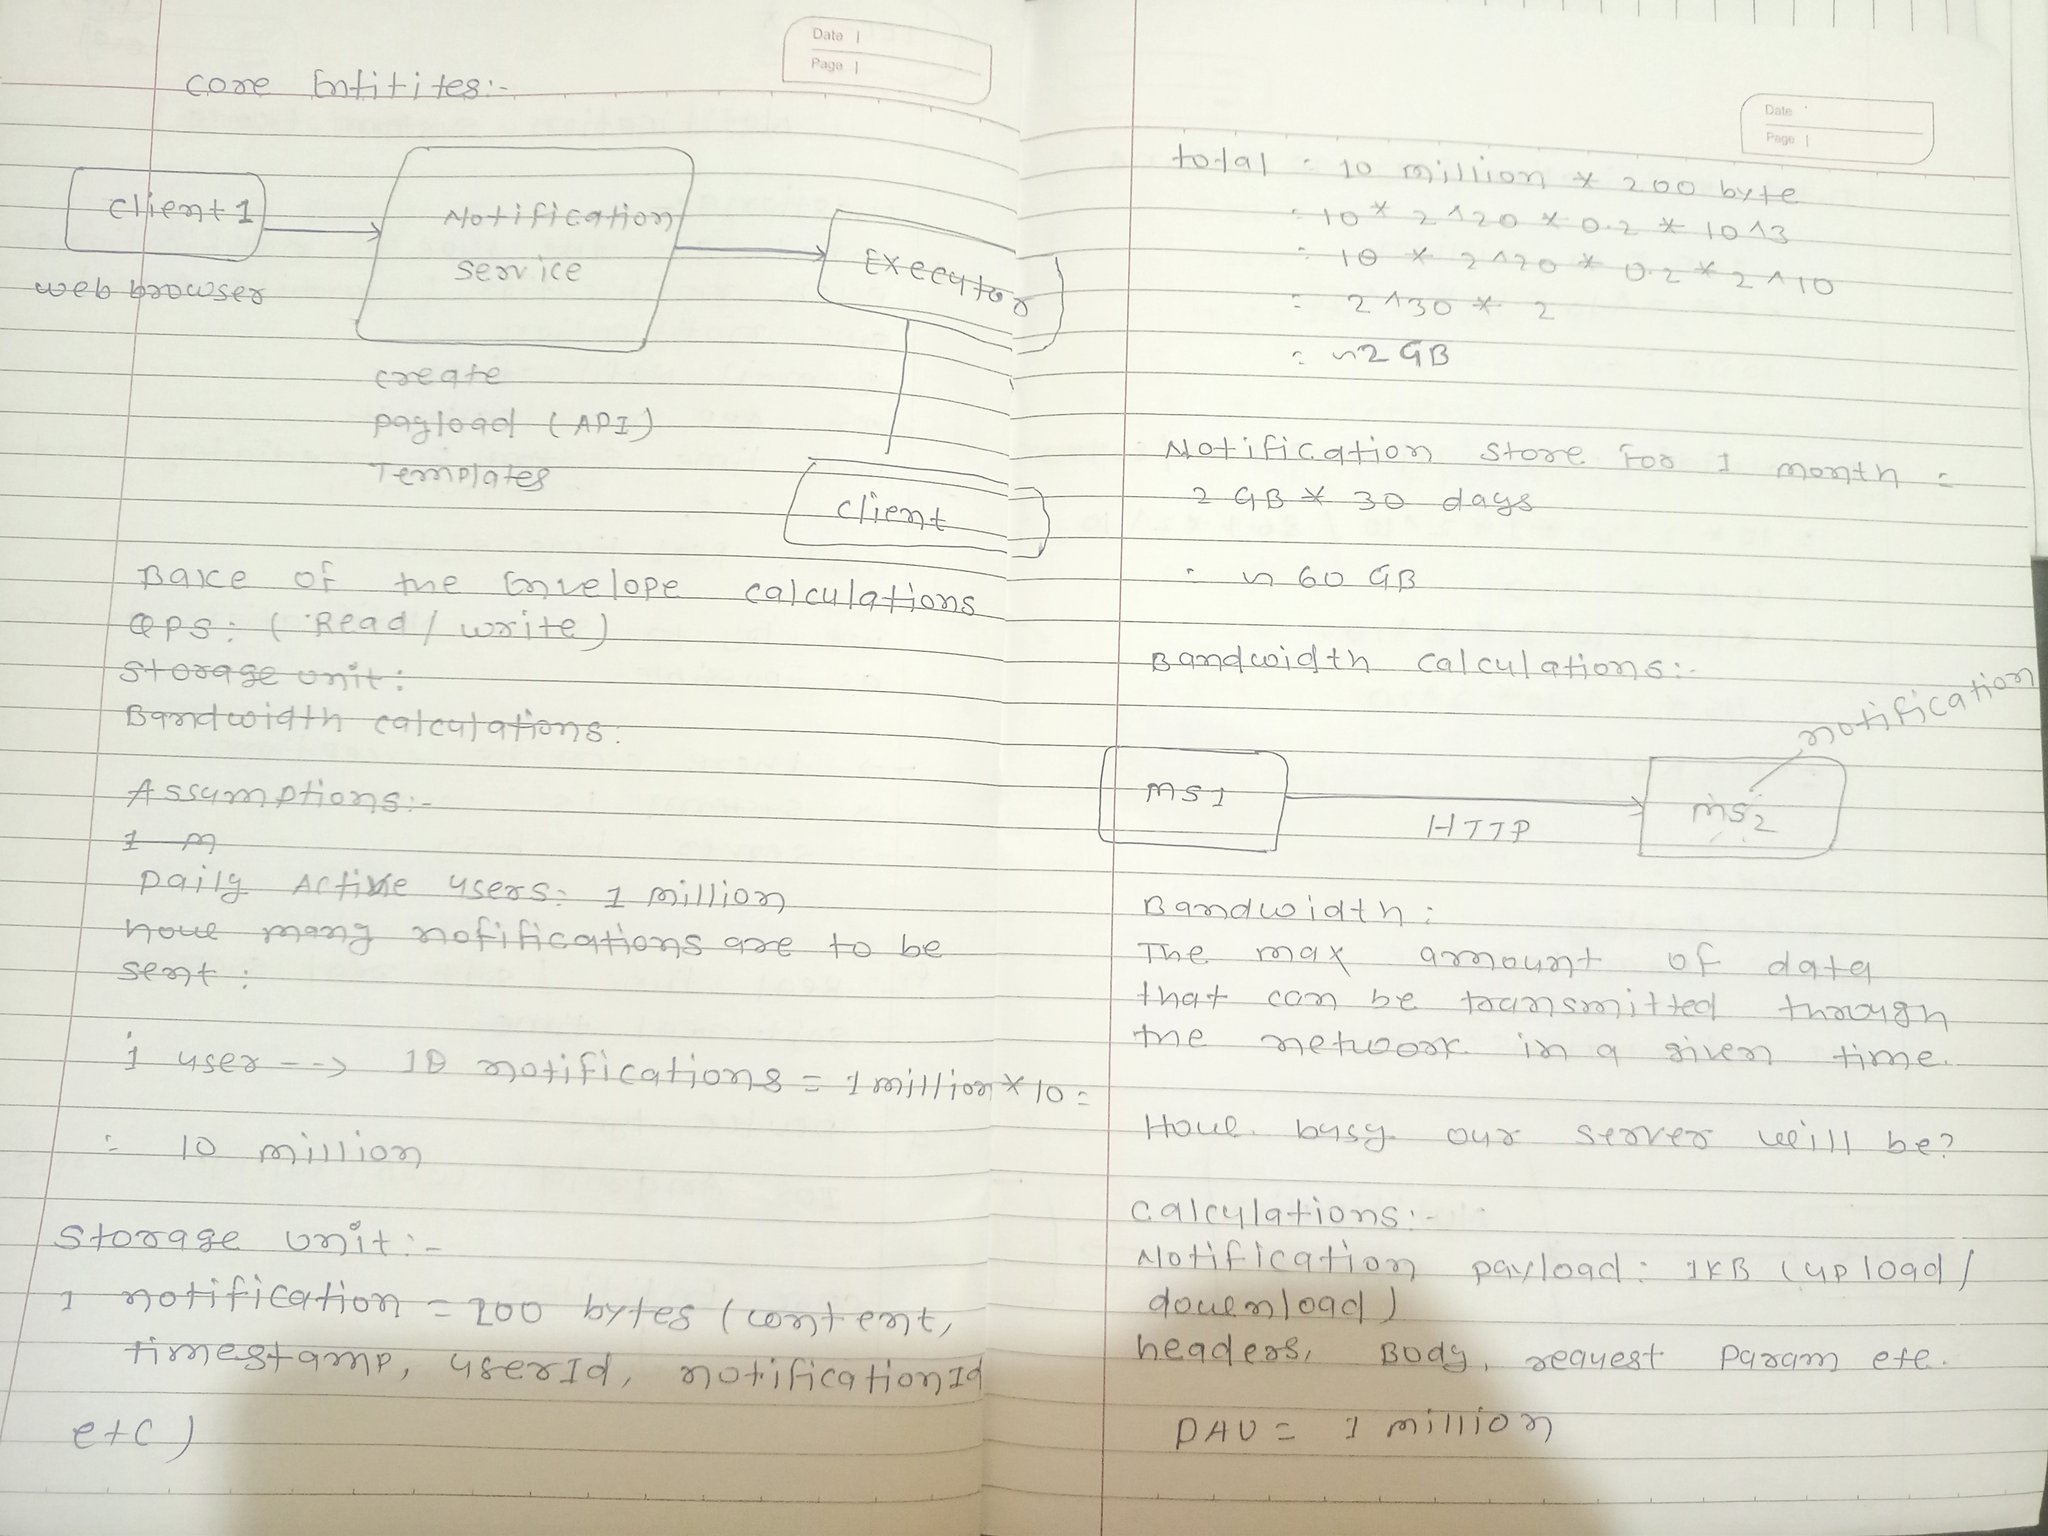 Date
Page
core Entitites:-
client 1
Notification
service
Executor
web browser
create
payload (API)
Templates
client
Bake of the Envelope calculations
QPS: (Read / write)
Storage unit:
Bandwidth calculations:
Assumptions:-
1 m
Daily Active users: 1 million
how many notifications are to be
sent:
1 user --> 10 notifications = 1 million * 10 =
= 10 million
Storage unit:-
1 notification = 200 bytes (content,
timestamp, userId, notificationId
etc)
Date
Page
total = 10 million * 200 byte
= 10 * 2^20 * 0.2 * 10^3
= 10 * 2^20 * 0.2 * 2^10
= 2^30 * 2
= ~2 GB
Notification store for 1 month =
2 GB * 30 days
= ~ 60 GB
Bandwidth calculations:-
notification
MS1
HTTP
MS2
Bandwidth:
The max amount of data
that can be transmitted through
the network in a given time.
How busy our server will be?
calculations:-
Notification payload: 1KB (upload/
download)
headers, Body, request Param etc.
DAU = 1 million